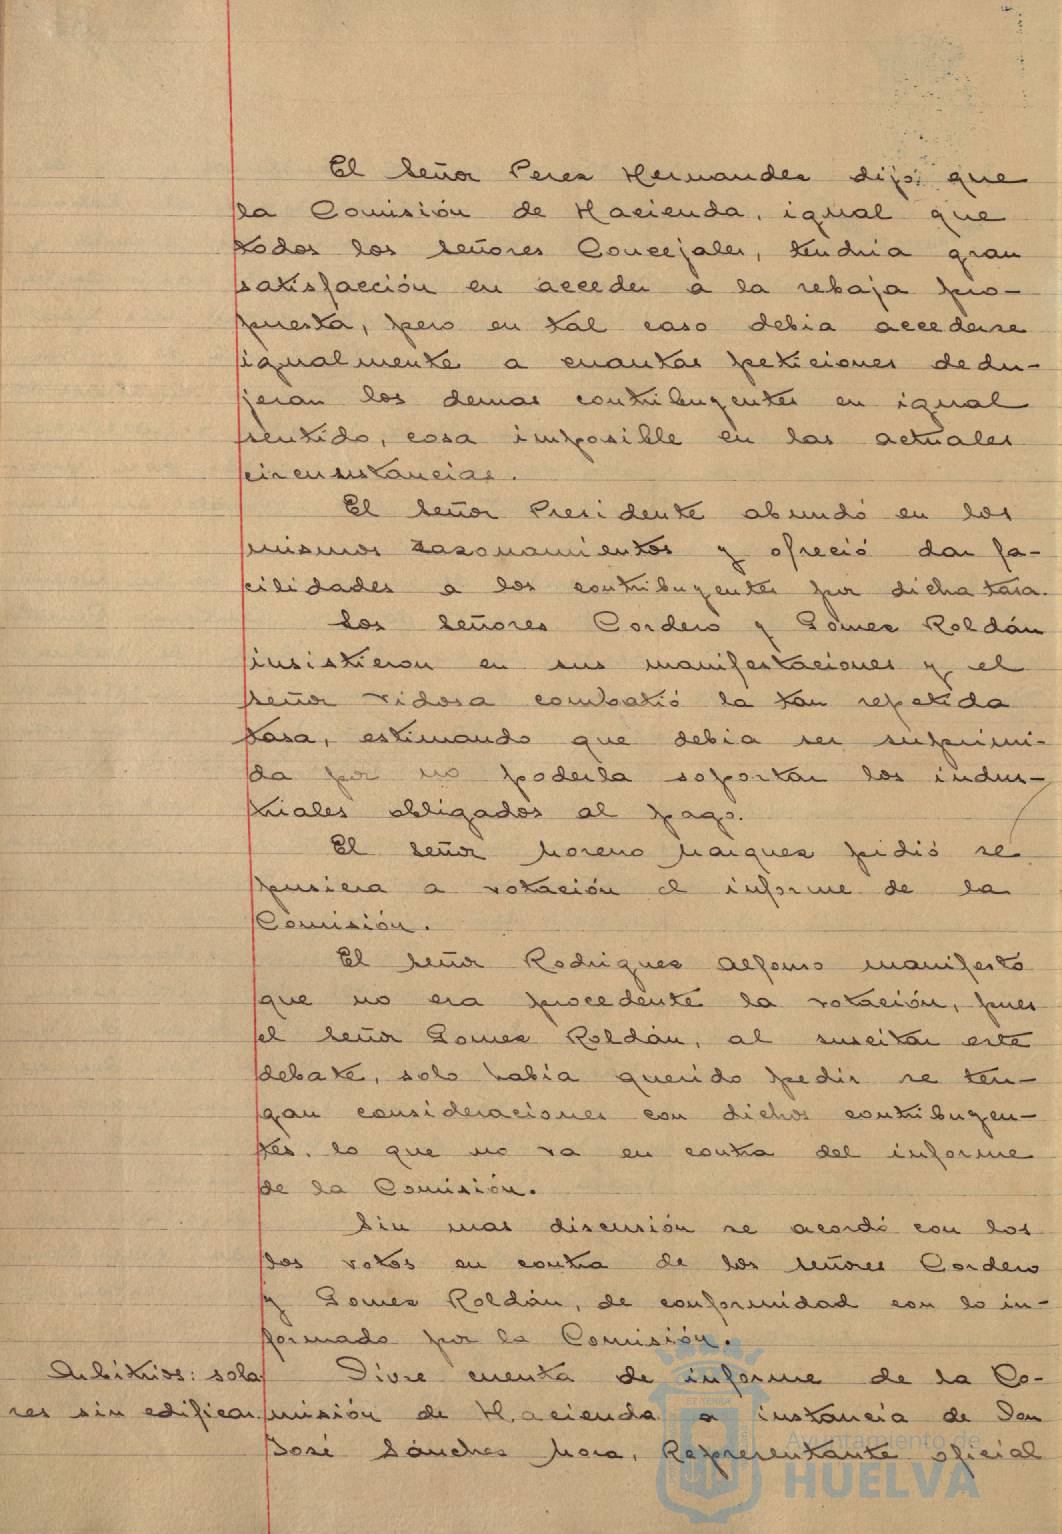 El Señor Perez Hernandez dijo: que
la Comisión de Hacienda, igual que
todos los señores Concejales, tendria gran
satisfacción en acceder a la rebaja pro-
puesta, pero en tal caso debia accederse
igualmente a cuantas peticiones dedu-
jeran los demas contribuyentes en igual
sentido, cosa imposible en las actuales
circunstancias.
El Señor Presidente abundó en los
mismos razonamientos y ofreció dar fa-
cilidades a los contribuyentes por dicha tasa.
Los Señores Cordero y Gomez Roldán
insistieron en sus manifestaciones y el
Señor Vidosa combatió la tan repetida
tasa, estimando que debia ser suprimi-
da por no poderla soportar los indus-
triales obligados al pago.
El Señor Moreno Marquez pidió se
pusiera a votación el informe de la
Comisión.
El Señor Rodriguez Alfonso manifestó
que no era procedente la votación, pues
el Señor Gomez Roldán, al suscitar este
debate, solo habia querido pedir se ten-
gan consideraciones con dichos contribuyen-
tes, lo que no va en contra del informe
de la Comisión.
Sin mas discusión se acordó con los
dos votos en contra de los señores Cordero
y Gomez Roldán, de conformidad con lo in-
formado por la Comisión.
Arbitrios: sola Dióse cuenta de informe de la Co-
res sin edificar misión de Hacienda a instancia de Don
José Sánchez Mora, Representante oficial
Ayuntamiento de
HUELVA